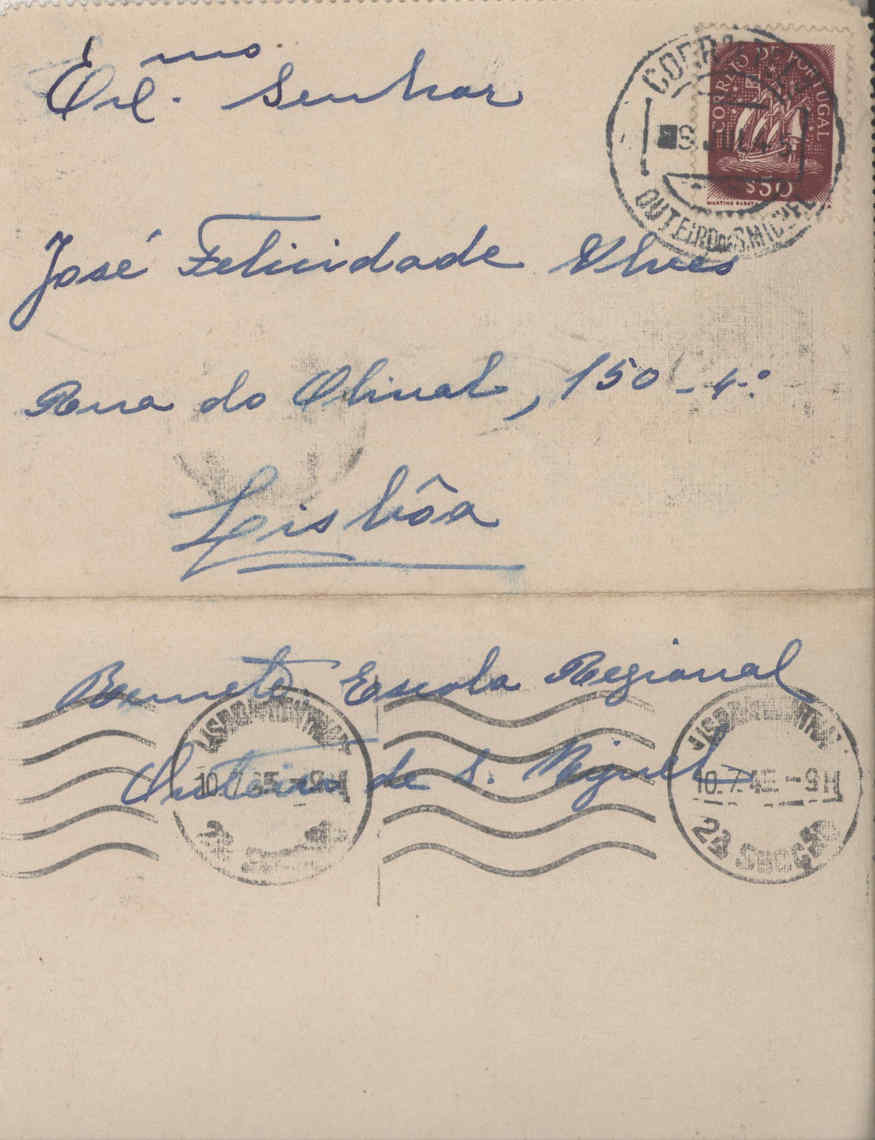 Exmo. Senhor
CORREIO DE PORTUGAL
$50
OUTEIRO DE S. MIGUEL
José Felicidade Alves
Rua do Olival, 150-4.º
Lisbôa
Remete: Escola Regional
LISBOA CENTRAL
LISBOA CENTRAL
Outeiro de S. Miguel
10.7.45 - 9H
10.7.45 - 9H
2ª SECÇÃO
2ª SECÇÃO